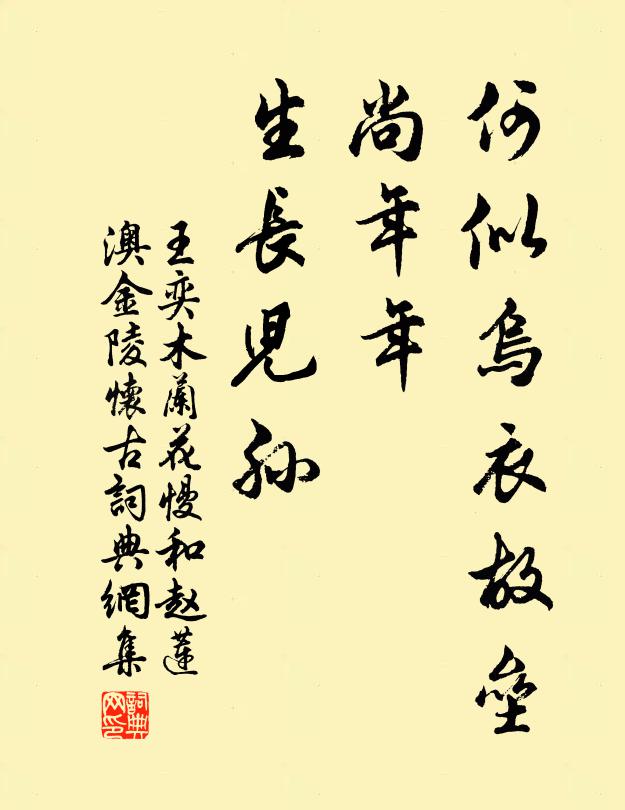 何似烏衣故壘
尚年年
生長兒孫
王奕木蘭花慢和赵蓮
澳金陵懷古詞典網集
詞典网印